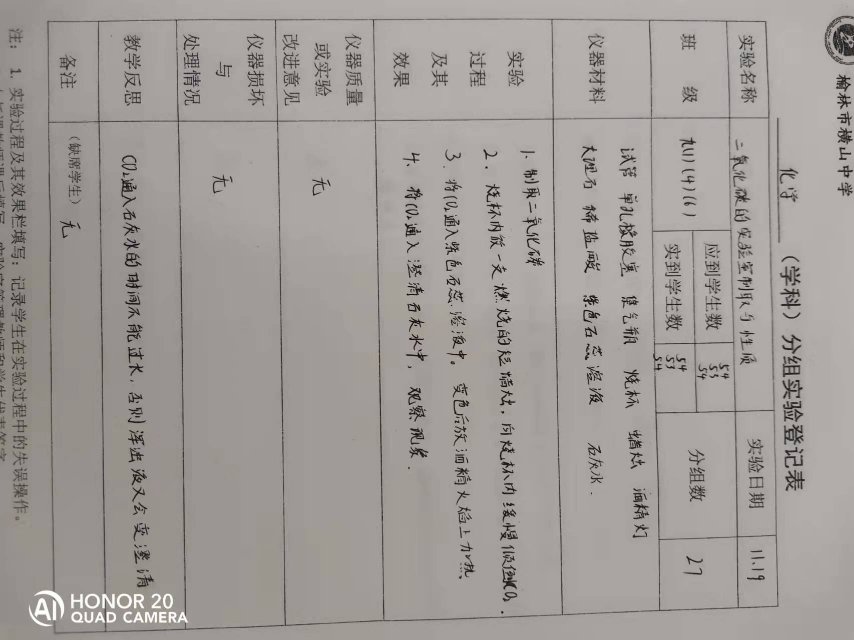 榆林市横山中学
化学（学科）分组实验登记表
实验名称 二氧化碳的实验室制取与性质 实验日期 11.19
班级 九(1)(4)(6) 应到学生数 54 53 54 分组数 27
实到学生数 54 53 54
仪器材料 试管 单孔橡胶塞 集气瓶 烧杯 蜡烛 酒精灯
大理石 稀盐酸 紫色石蕊溶液 石灰水.
实验过程及其效果
1. 制取二氧化碳
2. 烧杯内放一支燃烧的短蜡烛, 向烧杯内缓慢倾倒CO₂.
3. 将CO₂通入紫色石蕊溶液中. 变色后放酒精火焰上加热.
4. 将CO₂通入澄清石灰水中, 观察现象.
仪器质量或实验改进意见 无
仪器损坏与处理情况 无
教学反思 CO₂通入石灰水的时间不能过长, 否则浑浊液又会变澄清
备注 (缺席学生) 无
注： 1. 实验过程及其效果栏填写：记录学生在实验过程中的失误操作。
HONOR 20
QUAD CAMERA